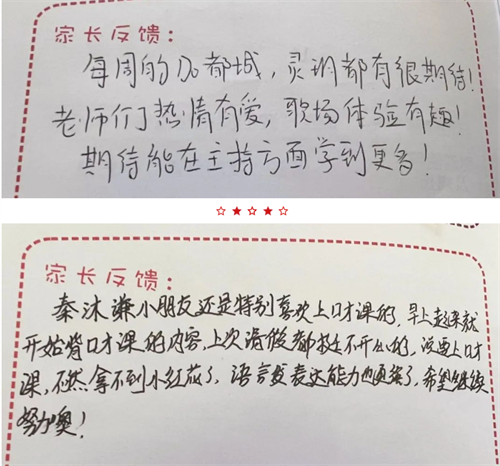 家长反馈：
每周的DO都城，灵玥都有很期待！
老师们热情有爱，职场体验有趣！
期待能在主持方面学到更多！
家长反馈：
秦沐谦小朋友还是特别喜欢上口才课的，早上起来就
开始背口才课的内容，上次请假都挺不开心的，说要上口才
课，不然拿不到小红花了，语言发表达能力也更强了，希望继续
努力噢！